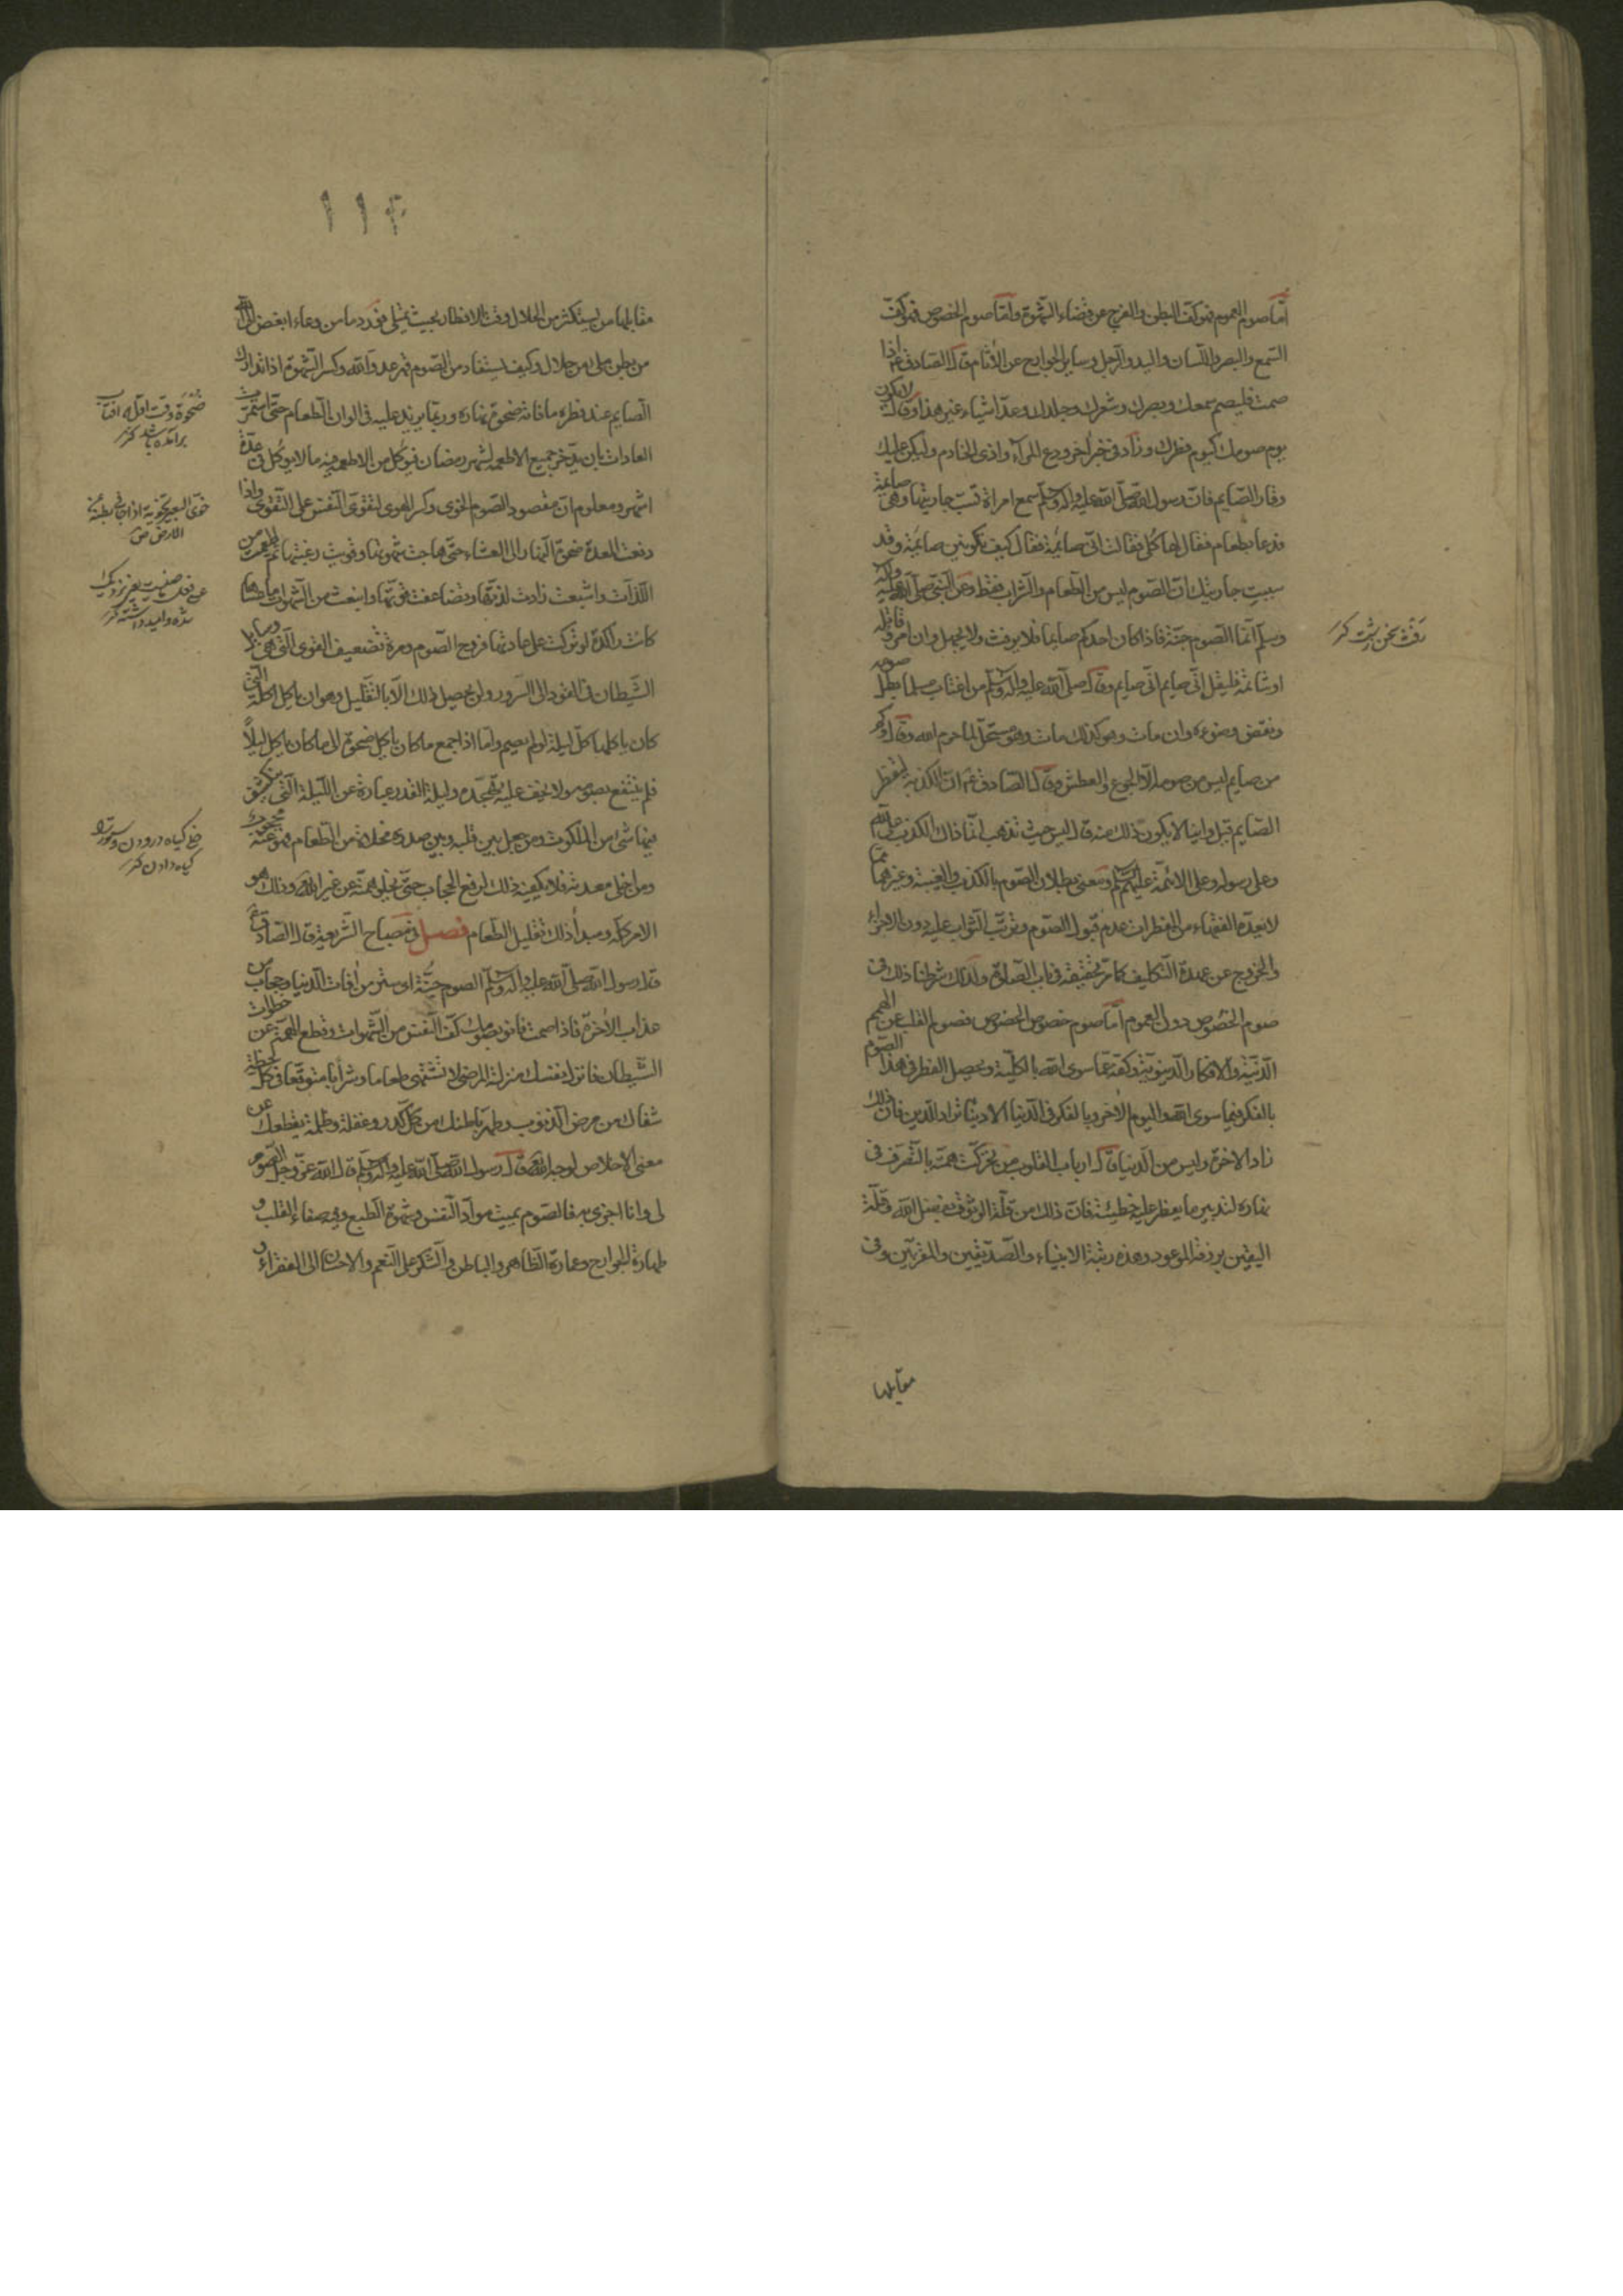 أمّا صوم العموم فهو كفّ البطن والفرج عن قضاء الشّهوة وأمّا صوم الخصوص فهو كفّ
السّمع والبصر واللّسان واليد والرّجل وساير الجوارح عن الآثام قال الصّادق ع اذا
صمت فليصم سمعك وبصرك وشعرك وجلدك وعدّ اشياء غير هذا وقال لا يكون
يوم صومك كيوم فطرك وزاد في خبر آخر ودع المراء واذى الخادم وليكن عليك
وقار الصّايم فانّ رسول الله صلّى الله عليه وآله وسلّم سمع امراة تسبّ جاريتها وهي صايمة
فدعا بطعام فقال لها كلي فقالت انّي صايمة فقال كيف تكونين صايمة وقد
سببت جاريتك انّ الصّوم ليس من الطّعام والشّراب فقط وعن النّبيّ صلّى الله عليه وآله
وسلّم انّما الصّوم جنّة فاذا كان احدكم صايما فلا يرفث ولا يجهل وان امرؤ قاتله
او شاتمه فليقل انّي صايم انّي صايم وقال صلّى الله عليه وآله وسلّم من اغتاب مسلما بطل صومه
ونقض وضوءه وان مات وهو كذلك مات وهو مستحلّ لما حرم الله وقال وكم
من صايم ليس من صومه الّا الجوع والعطش وقال الصّادق ع انّ الكذبة ليفطر
الصّايم قيل واينا لا يكون ذلك منه قال ليس حيث تذهب انّما ذاك الكذب على الله
وعلى رسوله وعلى الائمّة عليهم السّلم ومعنى بطلان الصّوم بالكذب والغيبة وغيرهما ممّا
لا يعدّه الفقهاء من المفطرات عدم قبول الصّوم وترتّب الثّواب عليه دون الاجزاء
والخروج عن عهدة التّكليف كما مرّ تحقيقه في باب الصّلوة ولذلك شرطنا ذلك في
صوم الخصوص دون العموم أمّا صوم خصوص الخصوص فصوم القلب عن الهمم
الدّنيّة والافكار الدّنيويّة وكفّه عمّا سوى الله بالكلّيّة ويحصل الفطر في هذا الصّوم
بالفكر فيما سوى الله واليوم الآخر وبالفكر في الدّنيا الا دنيا تراد للّدين فان ذلك
زاد الآخرة وليس من الدّنيا قال ارباب القلوب من تحرّكت همّته بالتّصرّف في
نهاره لتدبير ما يفطر عليه خطيئة فانّ ذلك من قلّة الوثوق بفضل الله وقلّة
اليقين برزقه الموعود وهذه رتبة الانبياء والصّدّيقين والمقرّبين وفي
مقابلها
رفث سخن زشت كنز
١١٤
مقابلها من يستكثر من الحلال وقت الافطار بحيث يمتلي فورد ما من وعاء ابغض الى الله
من بطن ملئ من حلال وكيف يستفاد من الصّوم قهر عدوّ الله وكسر الشّهوة اذا تدارك
الصّايم عند فطره ما فاته ضحوة نهاره وربما يزيد عليه في الوان الطّعام حتّى استمرّت
العادات بان يدّخر جميع الاطعمة لشهر رمضان فيؤكل من الاطعمة فيه ما لا يؤكل في عدّة
اشهر ومعلوم انّ مقصود الصّوم الخوى وكسر الهوى لتقوى النّفس على التّقوى واذا
دفعت المعدة ضحوة النّهار الى العشاء حتّى هاجت شهوتها وقويت رغبتها ثم اطعمت من
اللّذّات واشبعت زادت لذّتها وتضاعفت قوّتها وانبعث من الشّهوات ما عساها
كانت راكدة لو تركت على عادتها فروح الصّوم وسرّه تضعيف القوى الّتي هي وسايل
الشّيطان في القود الى الشّرور ولن يحصل ذلك الّا بالتّقليل وهو ان ياكل اكلته الّتي
كان ياكلها كلّ ليلة لو لم يصم وامّا اذا جمع ما كان ياكل ضحوة الى ما كان ياكل ليلًا
فلم ينتفع بصومه ولا يخف عليه تهجّده وليلة القدر عبارة عن اللّيلة الّتي ينكشف
فيها شئ من الملكوت ومن جعل بين قلبه وبين صدره مخلاة من الطّعام فهو عنه محجوب
ومن اخلى معدته فلا يكفيه ذلك لرفع الحجاب حتّى يخلو همّته عن غير الله وذلك هو
الامر كلّه ومبدأ ذلك تقليل الطّعام فصل في مصباح الشّريعة قال الصّادق ع
قال رسول الله صلّى الله عليه وآله وسلّم الصوم جنّة اى ستر من آفات الدّنيا وحجاب من
عذاب الآخرة فاذا صمت فانو بصومك كفّ النّفس من الشّهوات وقطع الهمّة عن خطوات
الشّيطان فانزل نفسك منزلة المرضى لا تشتهي طعاما وشرابا متوقّعا في كلّ لحظة
شفاك من مرض الذّنوب وطهّر باطنك من كلّ كدر وغفلة وظلمة يقطعك عن
معنى الاخلاص لوجه الله تع قال رسول الله صلّى الله عليه وآله وسلّم قال الله عزّ وجلّ الصّوم
لي وانا اجزى به فالصّوم يميت موادّ النّفس وشهوة الطّبع وفيه صفاء القلب و
طهارة الجوارح وعمارة الظّاهر والباطن والشّكر على النّعم والاحسان الى الفقراء و
ضحوة وقت اوّل كه افتاب
برآمده باشد كنز
خوّى البعير تخوية اذا جافى بطنه عن
الارض ص
شده واميد داشته كنز
كياه درودن وستور را
كياه دادن كنز